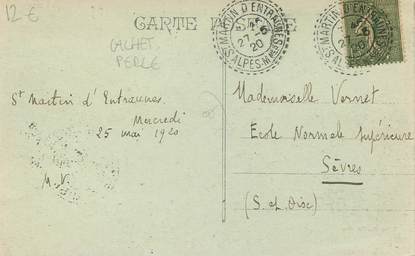 12 €
CARTE
CACHET
PERLÉ
ST MARTIN D'ENTRAUNES
27-5
20
ALPES-MMES
ST MARTIN D'ENTRAUNES
27-5
20
ALPES-MMES
St Martin d'Entraunes
Mercredi
25 mai 1920
M. V.
Mademoiselle Vernet
École Normale Supérieure
Sèvres
(S. et Oise)